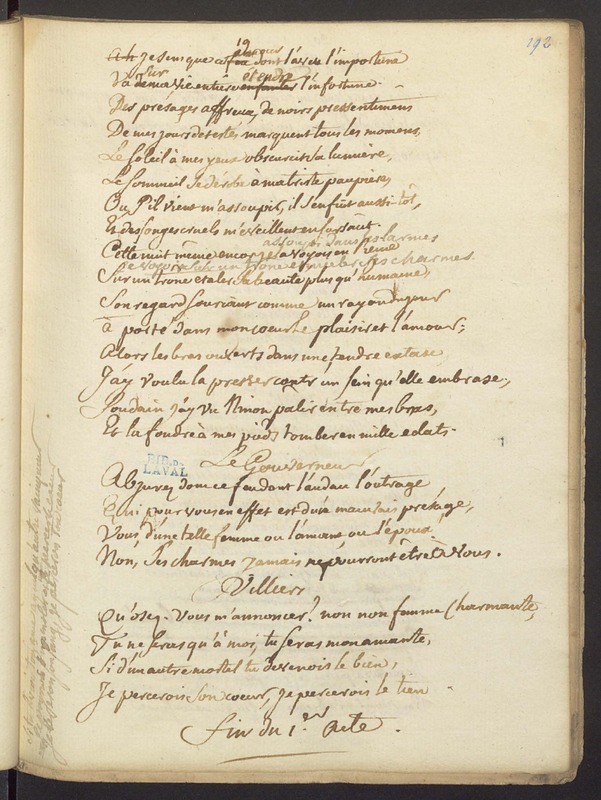 192
19
Ah je sens que ce feu dont l'excès l'importune
sur etendre
Va de ma vie entière enfanter l'infortune.
Des presages affreux, de noirs pressentimens
De mes jours detestés marquent tous les momens,
Le Soleil à mes yeux obscurcit sa lumière,
Le sommeil se dérobe à ma triste paupière,
Ou s'il vient m'assoupir, il s'enfuit aussi-tôt,
Et des songes cruels m'éveillent en sursaut.
assoupi dans les larmes
Cette nuit même encor je la voyois en reine
je voyois sur un trone et ses charmes
Sur un trone etaler sa beauté plus qu'humaine,
Son regard souriant comme un rayon du jour
à porté dans mon coeur le plaisir et l'amour;
Alors les bras ouverts dans une tendre extase
J'ay voulu la presser contr' un sein qu'elle embrase,
Soudain j'ay vu Ninon palir entre mes bras,
Et la foudre à mes pieds tomber en mille eclats.
Le Gouverneur
BIB. DE
LAVAL
Abjurez donc ce fendant l'outrage
Et qui pour vous en effet est d'un mauvais présage,
Vous d'une telle femme ou l'amant ou l'époux!
Non, Ses charmes jamais ne pourront être à Vous.
Villiers
Qu'osez-Vous m'annoncer? non non femme Charmante,
Tu ne seras qu'à moi, tu seras mon amante,
Si d'un autre mortel tu devenois le bien,
Je percerois Son coeur, Je percerois le tien.
fin du 1.er Acte.